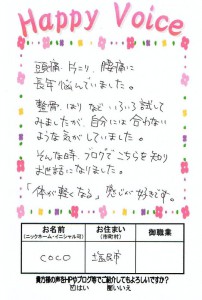 Happy Voice
頭痛、肩こり、腰痛に
長年悩んでいました。
整骨、はり など いろいろ試して
みましたが、自分には合わない
ような気がしていました。
そんな時、ブログでこちらを知り
お世話になりました。
「体が軽くなる」感じが好きです。
お名前
(ニックネーム・イニシャル可)
お住まい
(市町村)
御職業
COCO
貴方様の声をHPやブログ等でご紹介してもよろしいですか?
☑はい ■/いいえ